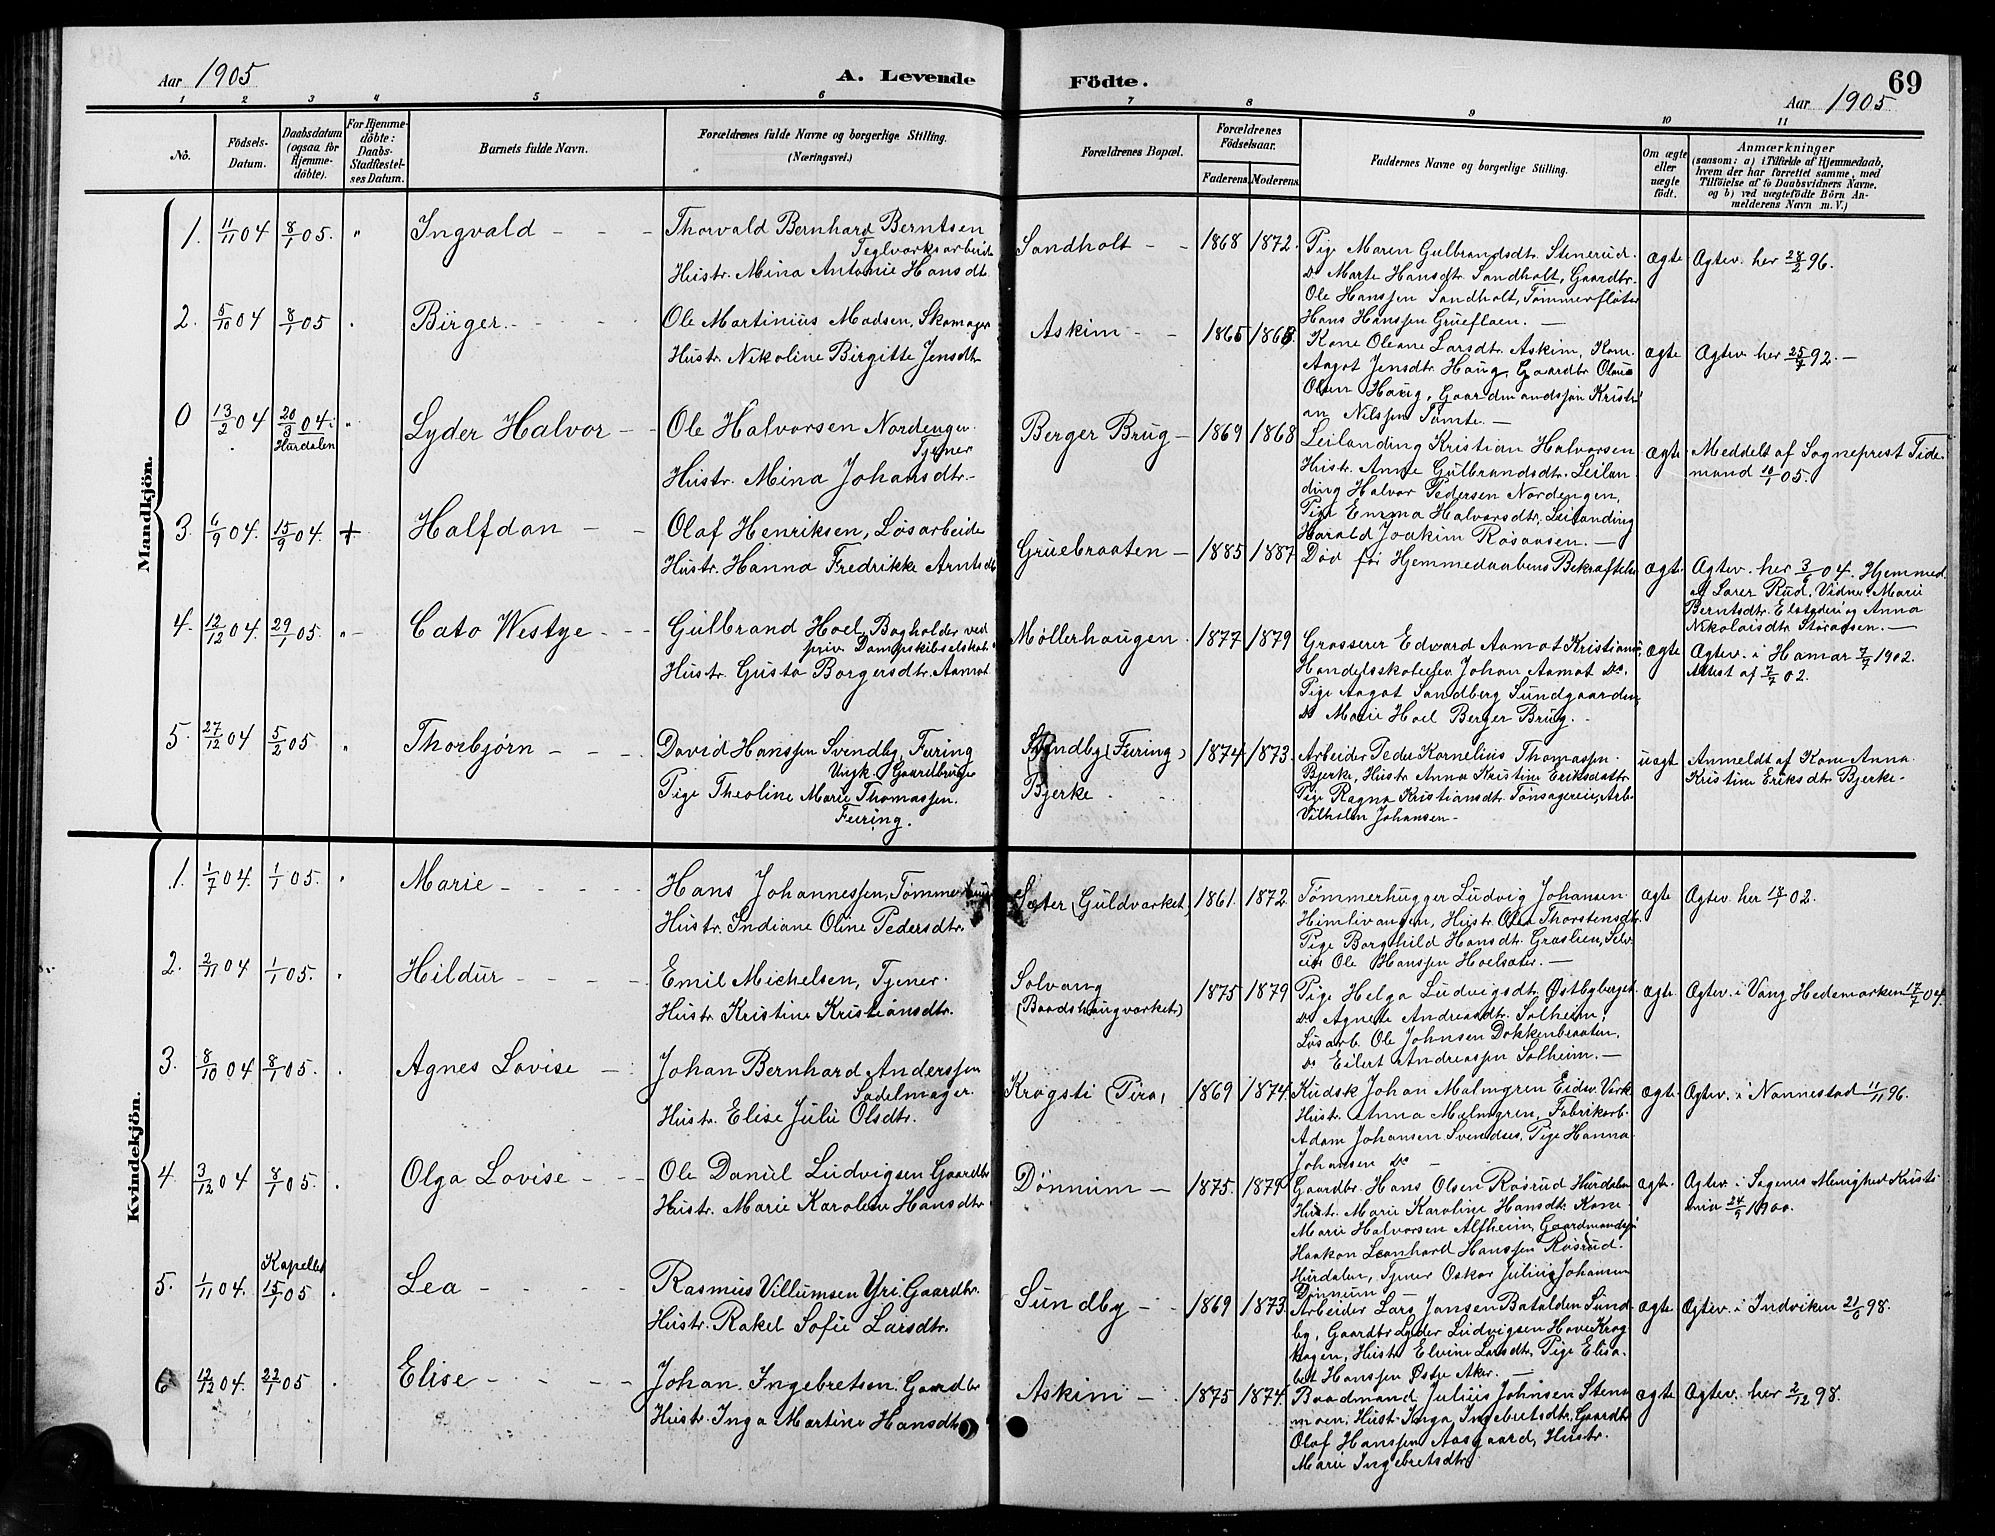 Aar 1905
A. Levende Födte.
69
Aar 1905
1 2 3 4 5 6 7 8 9 10 11
No.
Födsels-Datum.
Daabsdatum (ogsaa for Hjemme-döbte).
For Hjemme-döbte: Daabs-Stadfæstel-ses Datum.
Barnets fulde Navn.
Forældrenes fulde Navne og borgerlige Stilling.
(Næringsvei.)
Forældrenes Bopæl.
Forældrenes Födselsaar.
Faderens. Moderens.
Faddernes Navne og borgerlige Stilling.
Om ægte eller uægte födt.
Anmærkninger
(saasom: a) i Tilfælde af Hjemmedaab,
hvem der har forrettet samme, med
Tilföielse af to Daabsvidners Navne.
og b) ved uægtefödte Börn An-
melderens Navn m. V.)
Mandkjön.
1. 11/11 04 8/1 05. " Ingvald
Thorvald Bernhard Berntsen
Teglværksarbeid
Hustr. Mina Antonie Hansdt.
Sandholt 1868 1872.
Pige Maren Gulbrandsdt. Stenerud.
Do Marte Hansdtr. Sandholt, Gaardbr.
Ole Hanssen Sandholt, Tømmerfløter
Hans Hanssen Grueflaen.
ægte
Ægtev. her 28/2 96.
2. 5/10 04 8/1 05 Birger.
Ole Martinius Madsen, Skomager
Hustr. Nikoline Birgitte Jensdt
Askim 1865 1868.
Kone Oleane Larsdtr. Askim, Kone
Aagot Jensdtr. Haug, Gaardbr Olaus
Olsen Haug, Gaardmandssøn Kristi
an Nilssen Tømte.
ægte
Ægtev her 25/7 92.
0 13/2 04 20/3 04 i Hurdalen Lyder Halvor
Ole Halvorsen Nordengen
Tjener
Hustr. Mina Johansdtr.
Berger Brug 1869 1868
Leilænding Kristian Halvorsen
Hustr. Anne Gulbrandsdtr. Leilæn
ding Halvor Pedersen Nordengen,
Pige Emma Halvorsdtr, Leilænding
Harald Joakim Rosaasen.
ægte
Meddelt af Sogneprest Tide-
mand 10/1 05.
3. 6/9 04. 15/9 04. + Halfdan
Olaf Henriksen, Løsarbeide
Hustr. Hanna Fredrikke Arntsdt
Gruebraaten 1885 1887
Død før Hjemmedaabens Bekræftelse
ægte
Ægtev. her 3/6 04. Hjemmed
af Lærer Rud, Vidner Marie
Berntsdtr. og Anna
Nikolaisdtr.
4. 12/12 04. 29/1 05. Cato Westye
Gulbrand Hoel Bogholder ved
priv. Dampskibselskab
Hustr. Gusta Borgersdtr. Aamot
Møllerhaugen 1877 1879
Grosserer Edvard Aamot Kristiania
Handelsskoleelev Johan Aamot do.
Pige Aagot Sandberg Sundgaarden,
Do Marie Hoel Berger Brug.
ægte
Ægtev. i Hamar 7/7 1902.
Attest af 7/7 02.
5. 27/12 04 5/2 05 Thorbjørn
David Hanssen Svendby, Feiring
Ungk. Gaardbruger
Pige Theoline Marie Thomassen.
Feiring.
Svendby (Feiring)
Bjerke
1874 1873.
Arbeider Peder Kornelius Thomassen
Bjerke, Hustr. Anna Kristine Eriksdattr
Pige Ragna Kristiansdtr. Tønsagereie, Arb.
Vilhelm Johansen
uægt
Anmeldt af Kone Anna
Kristine Eriksdtr Bjerke
Kvindekjön.
1. 1/7 04. 1/1 05. Marie
Hans Johannessen, Tømmerhug
Hustr. Indiane Oline Pedersdtr.
Sæter (Guldværket) 1861. 1872
Tømmerhugger Ludvig Johansen
Himlivangen, Hustr. Olea Thorstensdt.
Pige Borghild Hansdtr. Graslien, Selv
eier Ole Hanssen Hoelsæter.
ægte
Ægtev. her 02.
2. 2/11 04 1/1 05. Hildur
Emil Michelsen, Tjener.
Hustr. Kristine Kristiansdtr.
Solvang
(Baadshaugværket) 1875 1879
Pige Helga Ludvigsdtr. Østbyberget
Do Agnete Andreasdtr. Solheim,
Løsarb. Ole Johnsen Dokkenbraaten,
Do Eilert Andreassen Solheim.
ægte
Ægtev. i Vang Hedemarken 17/7 04.
3. 8/10 04 8/1 05. Agnes Lovise
Johan Bernhard Anderssen
Sadelmager.
Hustr. Elise Julie Olsdtr.
Krogsti 1869 1874.
Kudsk Johan Malmgren Eidsv. Værk
Hustr. Anna Malmgren, Fabrikarb.
Adam Johansen Svendsen, Pige Hanna
Johansen Do
ægte
Ægtev. i Nannestad 11/11 96.
4. 3/12 04 8/1 05. Olga Lovise
Ole Daniel Ludvigsen Gaardbr
Hustr. Marie Karoline Hansdtr
Dønnum 1875. 1879
Gaardbr. Hans Olsen Rosrud Hurdalen
Hustr. Marie Karoline Hansdtr. Kone
Marie Halvorsen Alfheim, Gaardmandssøn
Haakon Leonhard Hanssen Rosrud.
Hurdalen, Tjener Oskar Julius Johansen
Dønnum
ægte
Ægtev. i Sagenes Menighed Kristi
ania 24/9 1900.
5. 1/11 04. Kapellet 15/1 05 Lea
Rasmus Villumsen Yri, Gaardbr.
Hustr. Rakel Sofie Larsdtr.
Sundby 1869 1873.
Arbeider Lars Jansen Batalden Sund-
by, Gaardbr Lyder Ludvigsen Hove Krog
hagen, Hustr Elvine Larsdtr, Pige Elisa-
bet Hanssen Østre Aker.
ægte
Ægtev. i Indviken 21/6 98.
6 12/12 04. 22/1 05 Elise
Johan Ingebretsen Gaardbr
Hustr. Inga Martine Hansdtr
Askim 1875 1874.
Baadmand Julius Johnsen Stens
moen, Hustr. Inga Ingebretsdtr, Gaardbr
Olaf Hanssen Aasgaard, Hustr.
Marie Ingebretsdtr
ægte
Ægtev. her 2/12 98.